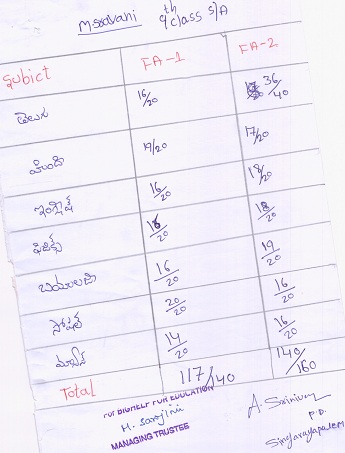 M Sravani 9th class S/A
Subict FA-1 FA-2
తెలుగు 16/20 36/40
హింది 19/20 17/20
ఇంగ్లిష్ 16/20 18/20
ఫిజిక్స్ 16/20 18/20
బయాలజి 16/20 19/20
సోషల్ 20/20 16/20
మ్యాథ్స్ 14/20 16/20
Total 117/140 140/160
For BIGHELP FOR EDUCATION
M. Sarojini
MANAGING TRUSTEE
A. Srinivas
P.D.
Singarayapalem